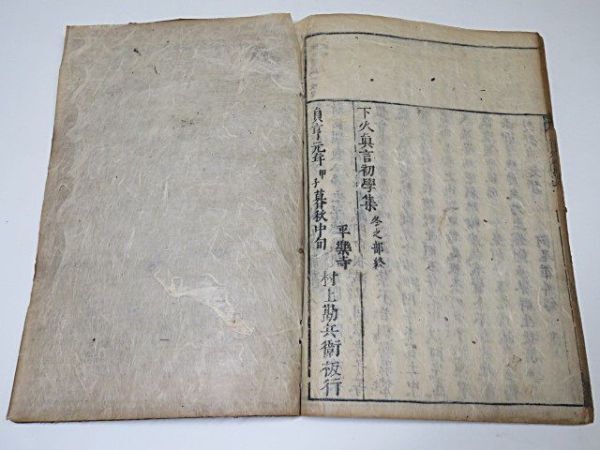 下火眞言初學集 冬之部終
貞享元年甲子暮秋中旬
平樂寺
村上勘兵衛板行